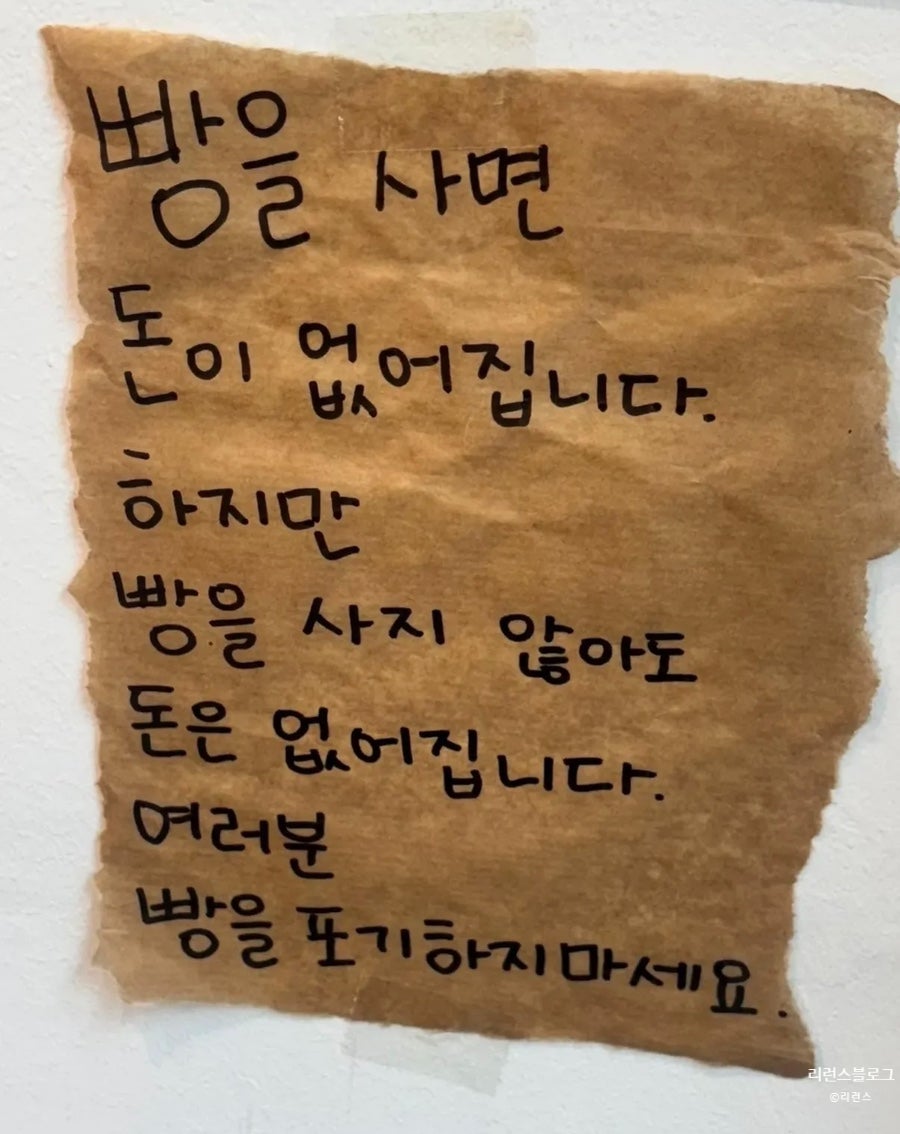 빵을 사면
돈이 없어집니다.
하지만
빵을 사지 않아도
돈은 없어집니다.
여러분
빵을 포기하지마세요.
리런스블로그
©리런스